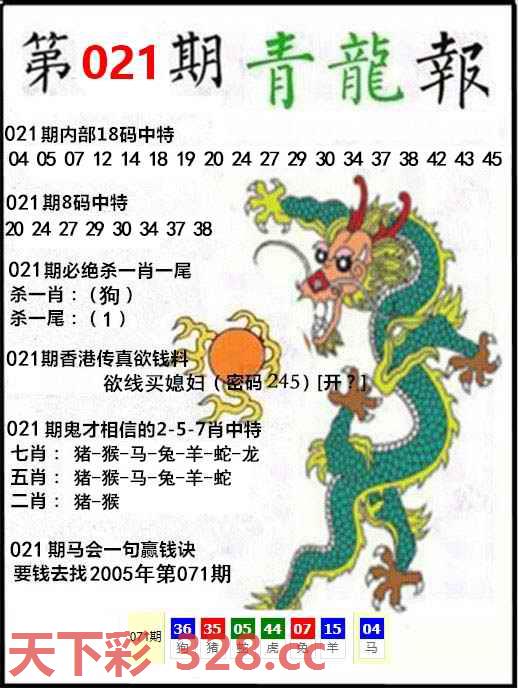 第021期青龍報
021期内部18码中特
04 05 07 12 14 18 19 20 24 27 29 30 34 37 38 42 43 45
021期8码中特
20 24 27 29 30 34 37 38
021期必绝杀一肖一尾
杀一肖：（狗）
杀一尾：（1）
021期香港传真欲钱料
欲线买媳妇（密码245）[开?]
021期鬼才相信的2-5-7肖中特
七肖： 猪-猴-马-兔-羊-蛇-龙
五肖： 猪-猴-马-兔-羊-蛇
二肖： 猪-猴
021期马会一句赢钱诀
要钱去找2005年第071期
071期 36 35 05 44 07 15 04
狗 猪 蛇 虎 兔 羊 马
天下彩 328.cc